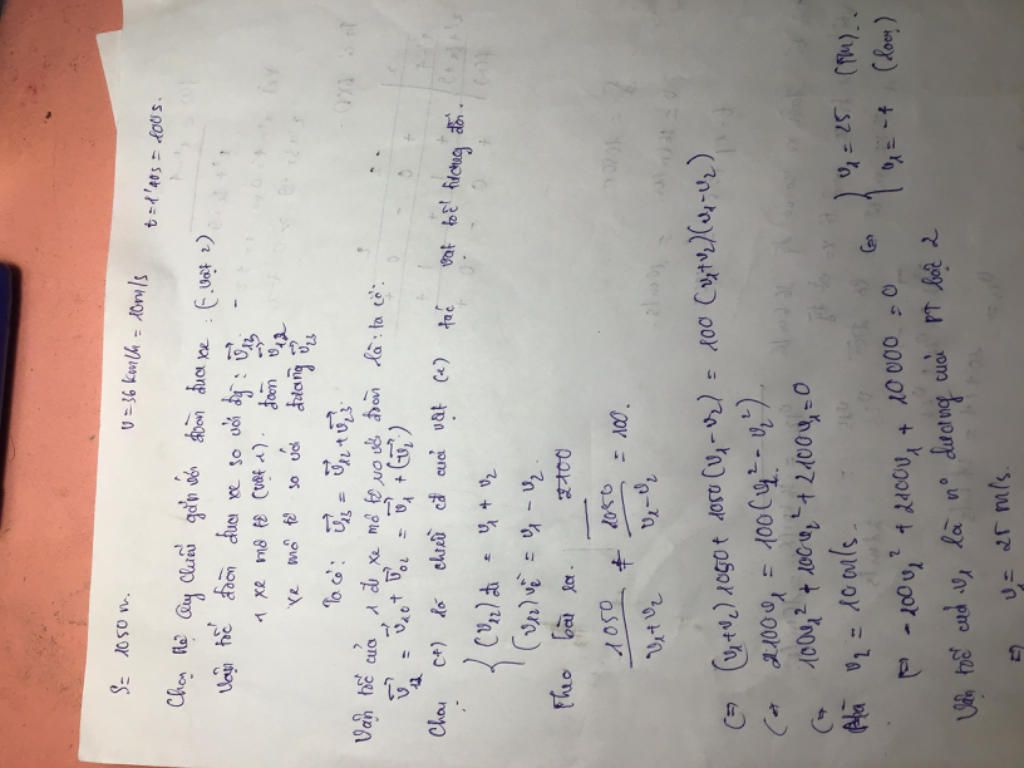 S= 1050 m. v=36 km/h = 10m/s t=1'40s = 100s.
Chọn hệ quy chiếu gắn với đoàn đua xe : ( vật 2)
Vận tốc đoàn đua xe so với đg : v23
1 xe mô tô (vật 1). đoàn v12
xe mô tô so với đường v23
Ta có: v13 = v12 + v23
Vận tốc của 1 đi xe mô tô so với đoàn là: ta có:
v12 = v10 + v02 = v1 + (v2)
Chọn (+) là chiều cđ của vật (1) vận tốc tương đối.
(v12) đi = v1 + v2
(v12) về = v1 - v2
Theo bài ra. 2100
1050 / v1+v2 + 1050 / v1-v2 = 100.
⇔ (v1+v2) 1050 + 1050 (v1-v2) = 100 (v1+v2)(v1-v2)
⇔ 2100v1 = 100(v1² - v2²)
⇔ 100v1² + 100v2² + 2100v1 = 0
Mà v2 = 10m/s
⇔ -100v1² + 2100v1 + 10000 = 0 ⇔ v1 = 25 (TM).
v1 = -4 (loại)
Vận tốc của v1 là n° dương của PT bậc 2
⇒ v1 = 25 m/s